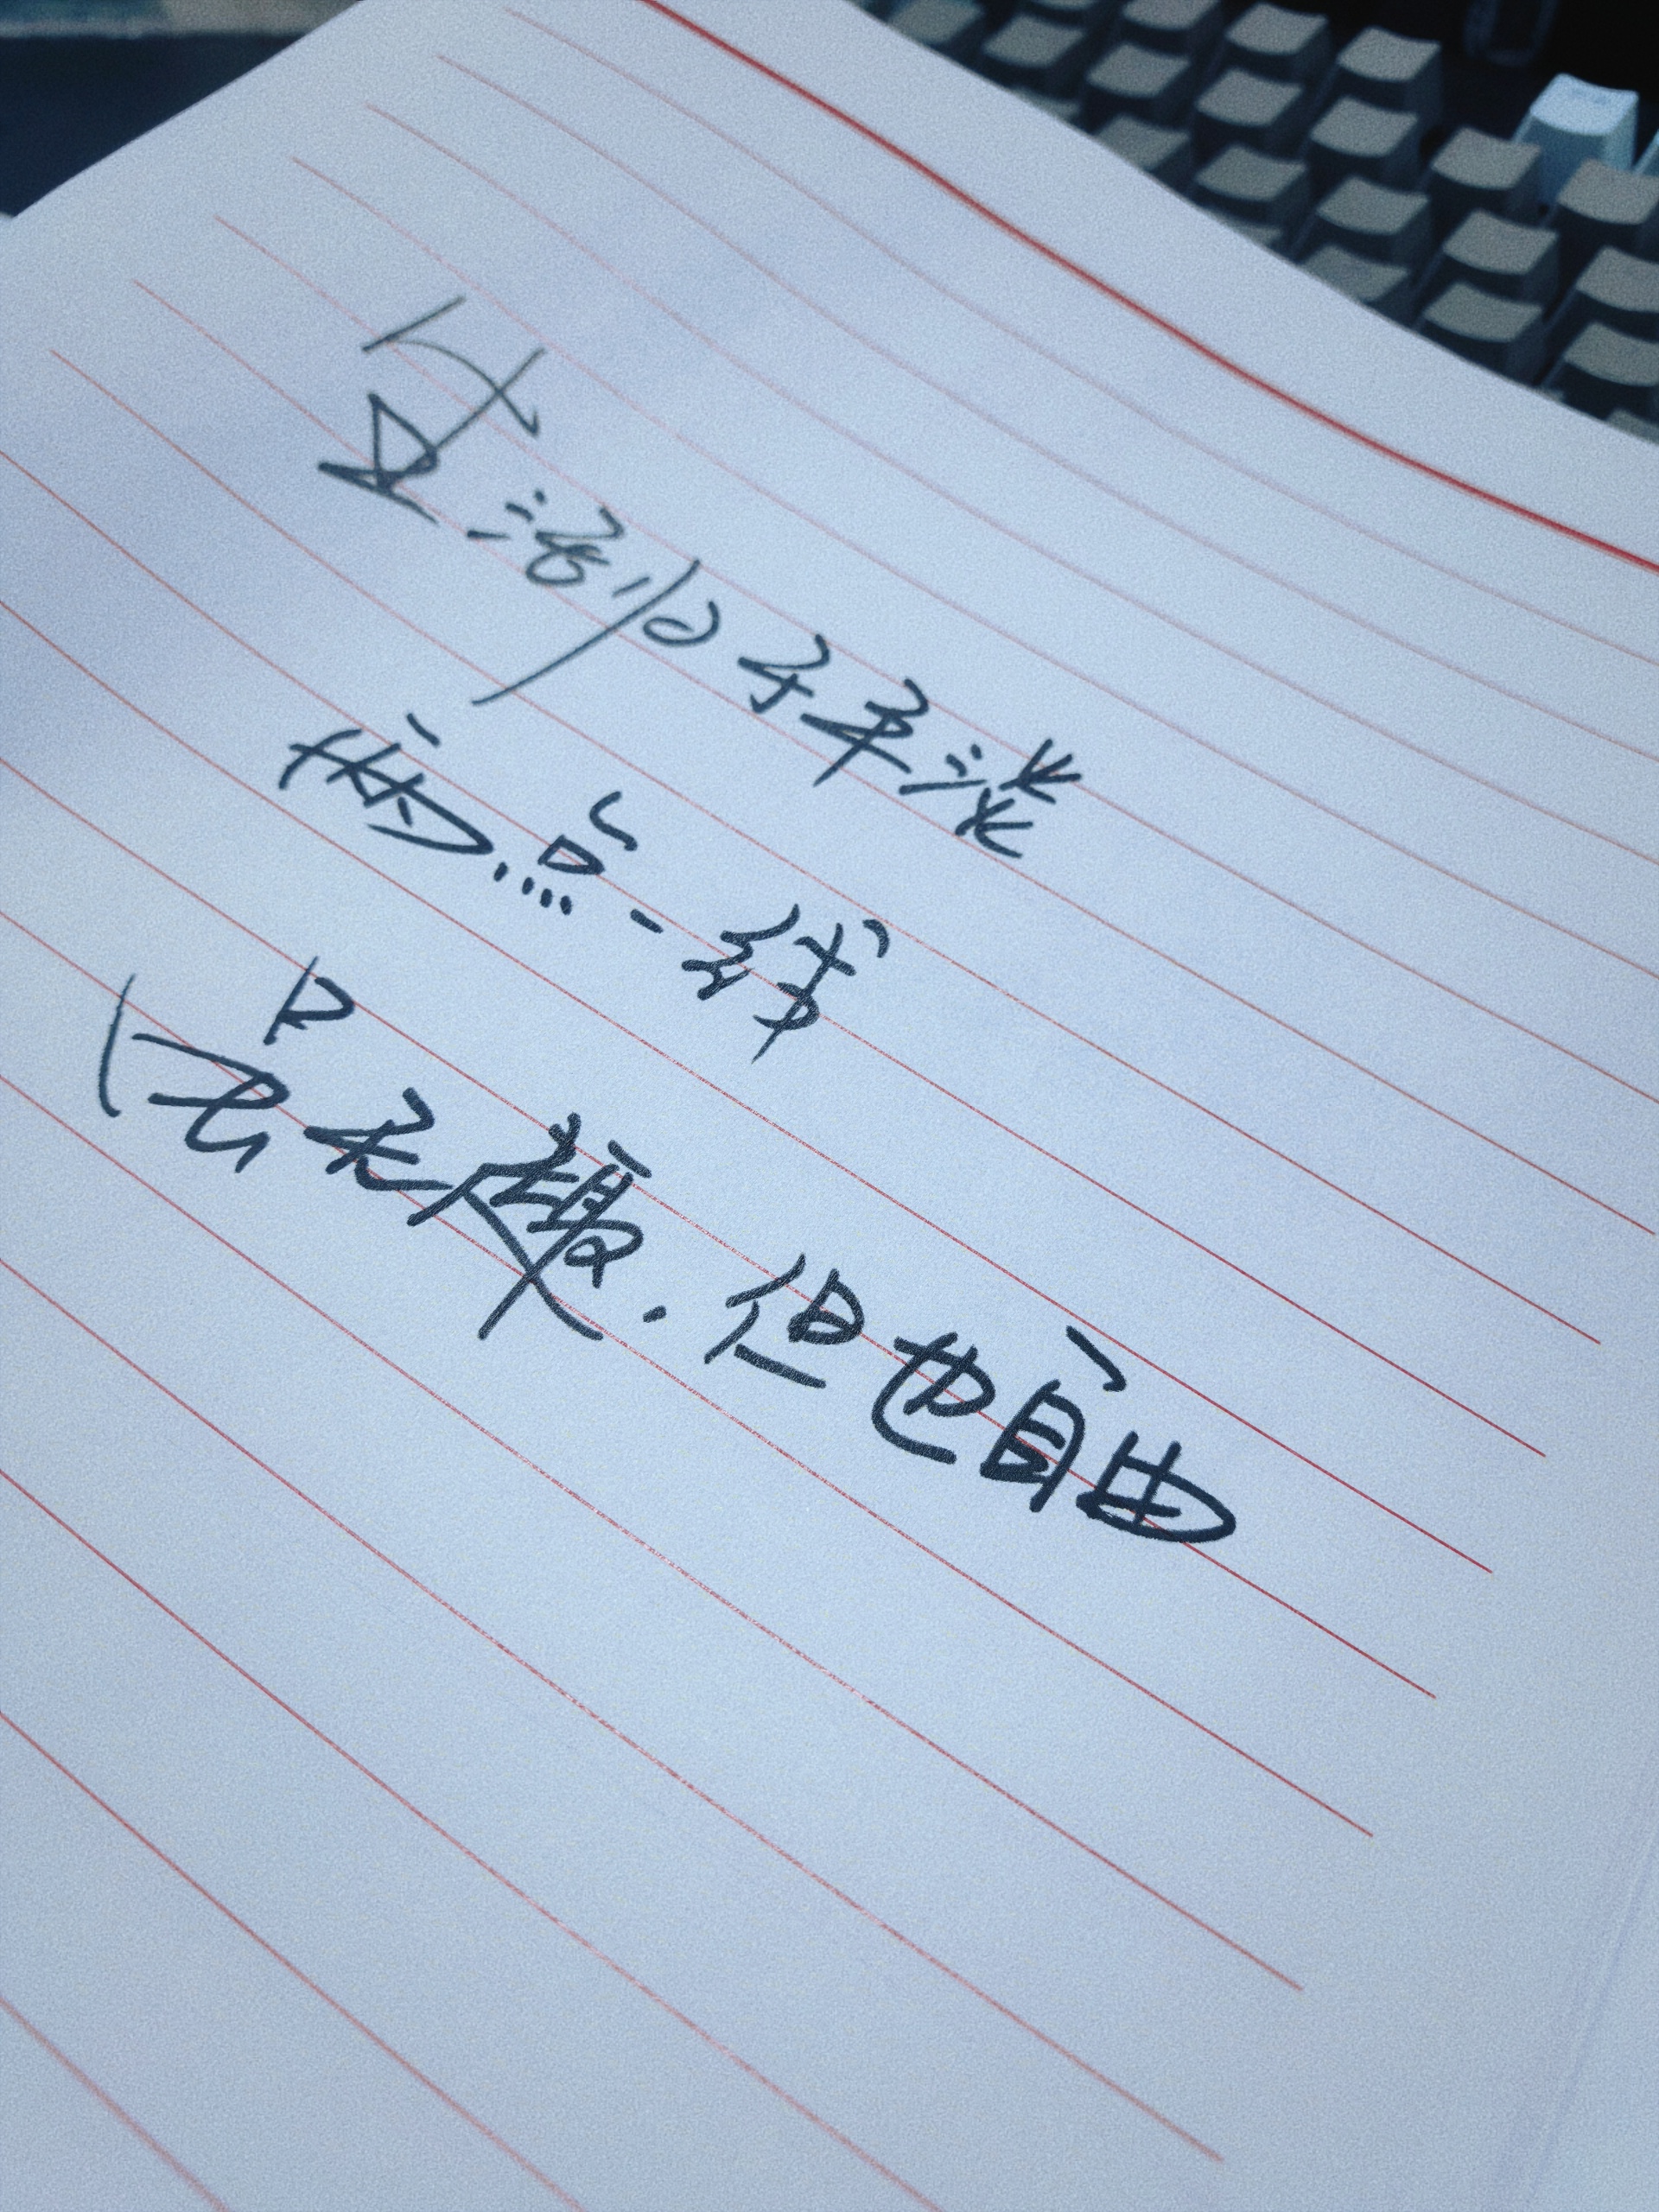 生活归于平淡
两点一线
虽无趣.但也自由